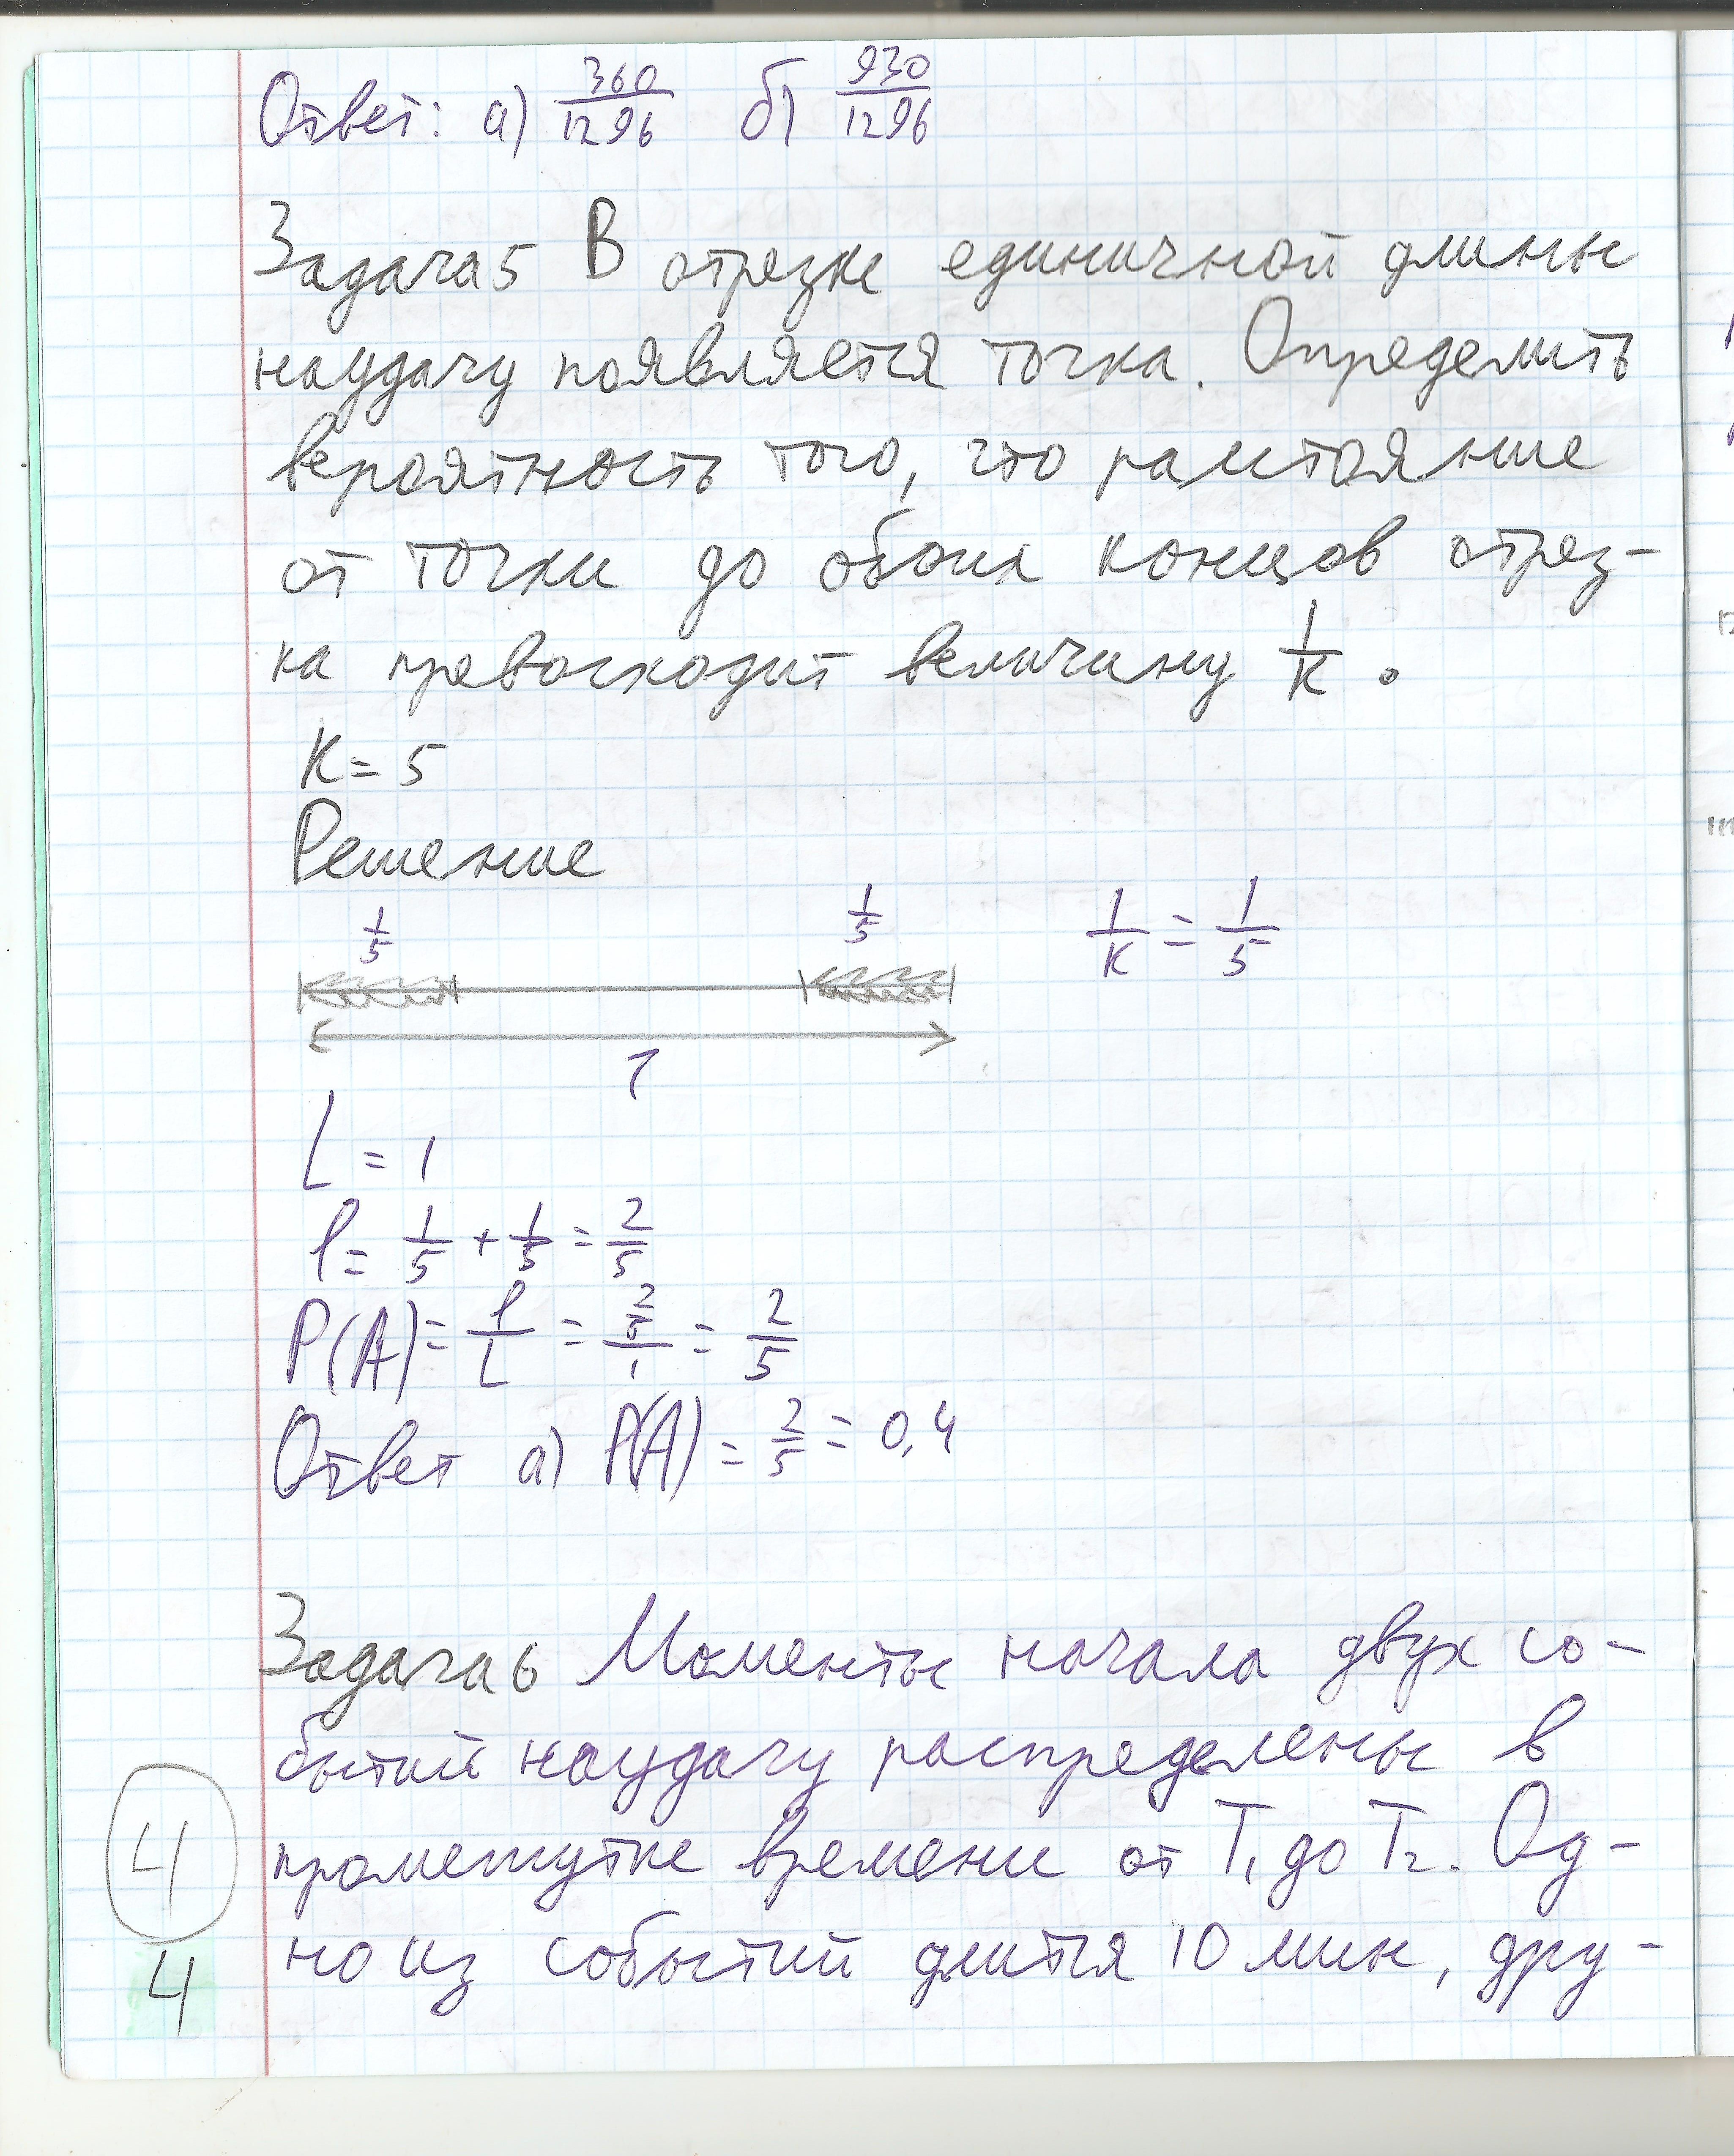 Ответ: а) 360/1296 б) 930/1296
Задача 5 В отрезке единичной длины
наудачу появляется точка. Определить
вероятность того, что расстояние
от точки до обоих концов отрез-
ка превосходит величину 1/k.
k = 5
Решение
1/5 1/5 1/k = 1/5
1
L = 1
l = 1/5 + 1/5 = 2/5
P(A) = l/L = (2/5)/1 = 2/5
Ответ а) P(A) = 2/5 = 0,4
Задача 6 Моменты начала двух со-
бытий наудачу распределены в
промежутке времени от T₁ до T₂. Од-
но из событий длится 10 мин, дру-
4
4